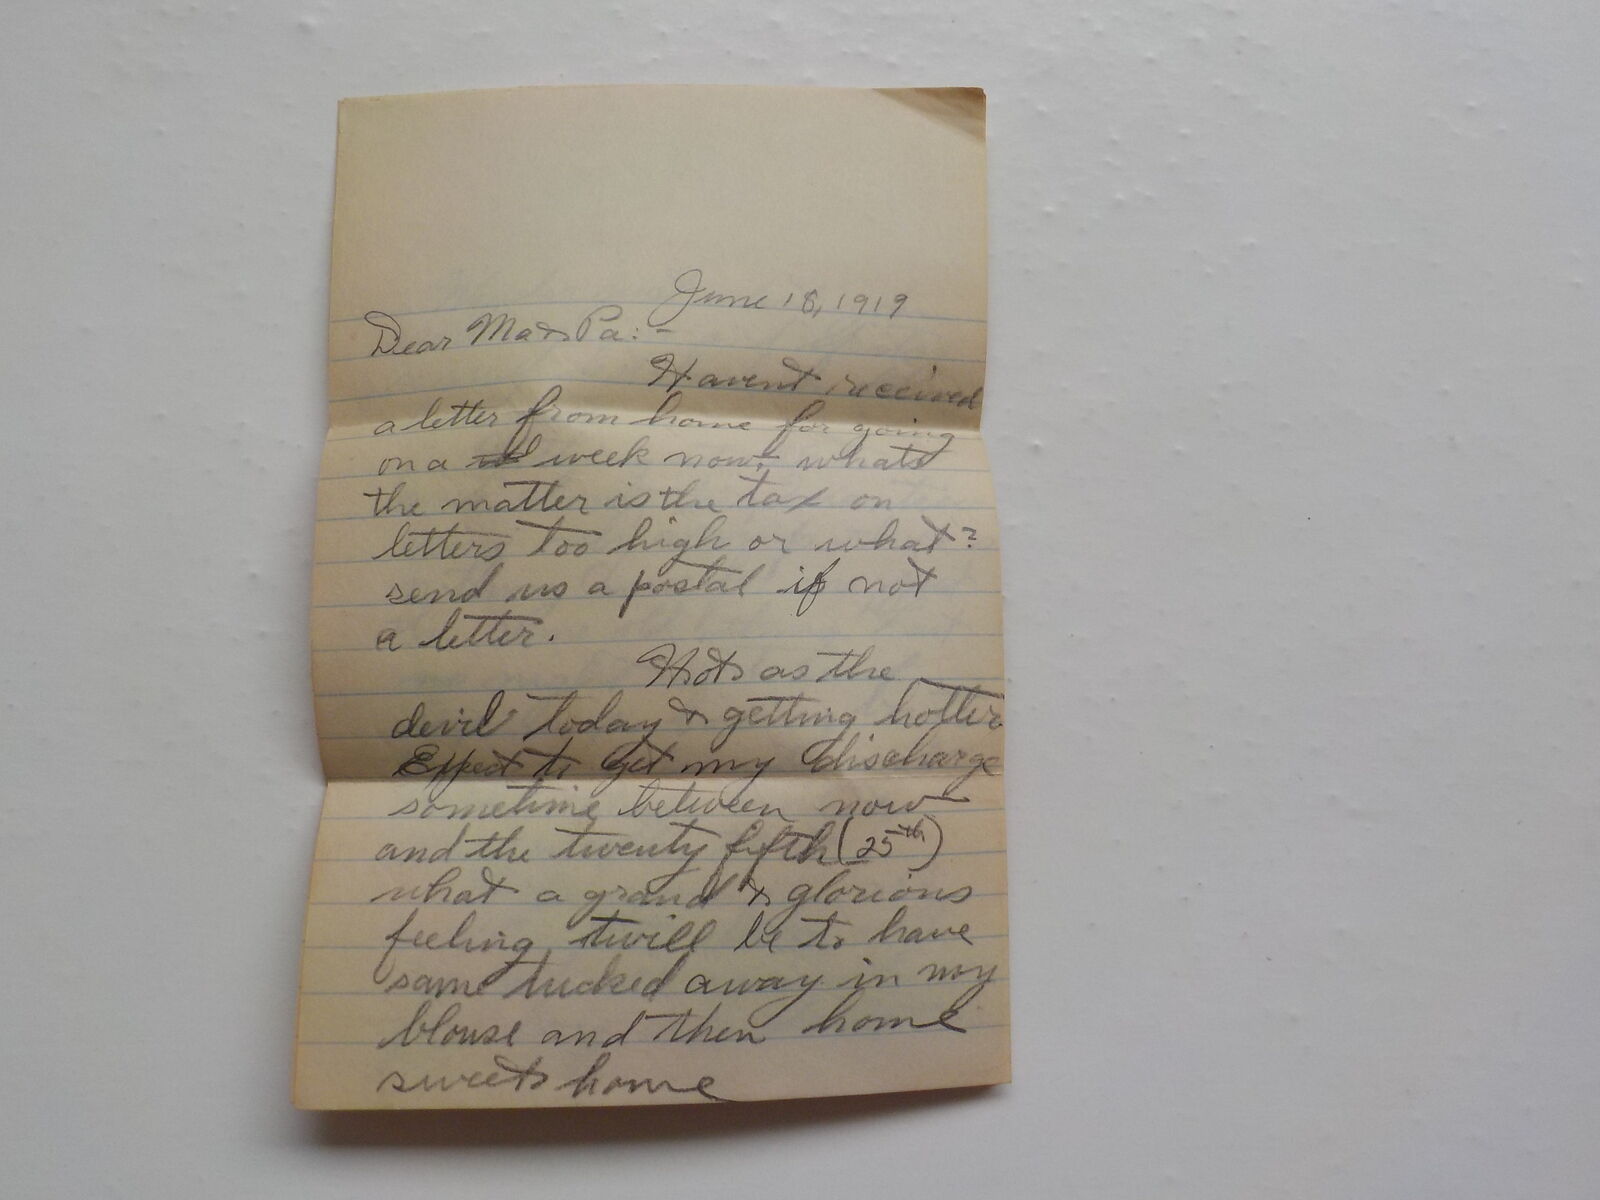 June 18, 1919
Dear Ma & Pa:-
Havent received
a letter from home for going
on a week now, whats
the matter is the tax on
letters too high or what?
send us a postal if not
a letter.
Hot as the
devil today & getting hotter
Expect to get my discharge
sometime between now
and the twenty fifth (25th)
what a grand & glorious
feeling twill be to have
same tucked away in my
blouse and then home
sweet home